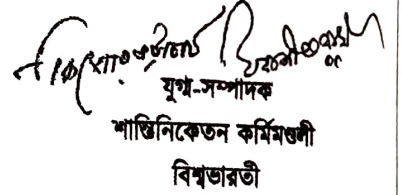 যুগ্ম-সম্পাদক
শান্তিনিকেতন কর্মিমণ্ডলী
বিশ্বভারতী